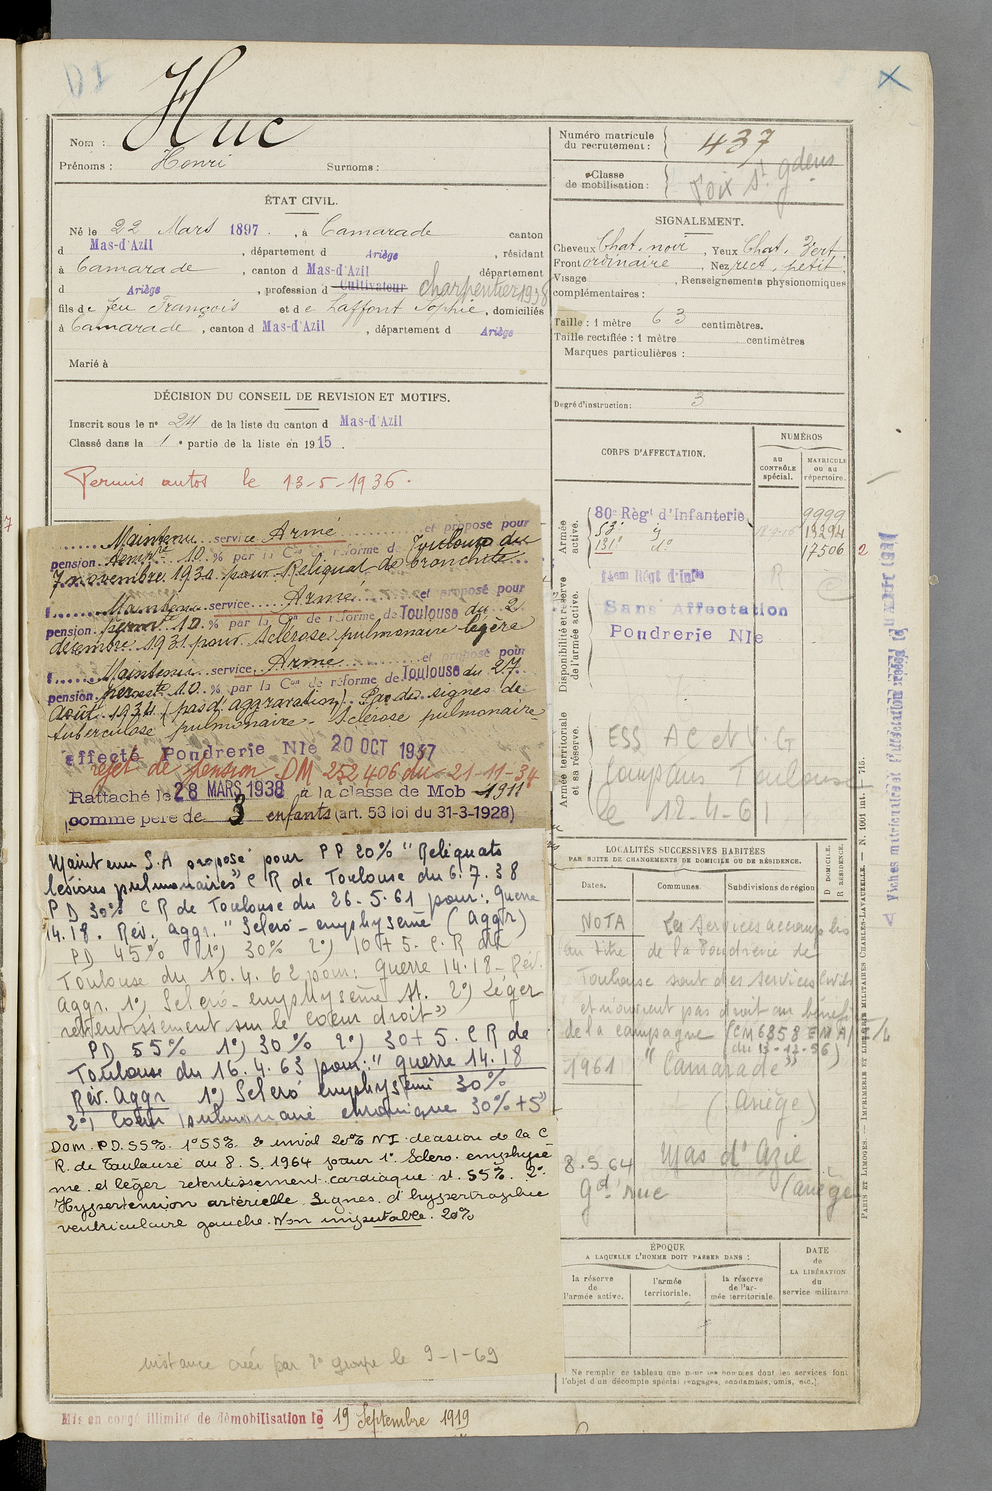 Huc
Nom :
Prénoms : Henri Surnoms :
ÉTAT CIVIL.
Né le 22 Mars 1897, à Camarade canton
d Mas-d'Azil, département d Ariège, résidant
à Camarade, canton d Mas-d'Azil département
d Ariège, profession d Cultivateur charpentier 1938
fils de feu François et de Laffont Sophie, domiciliés
à Camarade, canton d Mas-d'Azil, département d Ariège
Marié à
DÉCISION DU CONSEIL DE REVISION ET MOTIFS.
Inscrit sous le n° 24 de la liste du canton d Mas-d'Azil
Classé dans la 1e partie de la liste en 1915.
Permis autos le 13-5-1936.
Maintenu service Armé et proposé pour
pension temp^re 10 % par la C^on de réforme de Toulouse du
7 novembre 1930 pour Reliquat de bronchite
Maintenu service Armé et proposé pour
pension perm^te 10 % par la C^on de réforme de Toulouse du 2
décembre 1931 pour sclérose pulmonaire légère
Maintenu service Armé et proposé pour
pension perm^te 10 % par la C^on de réforme de Toulouse du 27
Août 1934 (pas d'aggravation). Pas de signes de
tuberculose pulmonaire - Sclérose pulmonaire
affecté Poudrerie Nle 20 OCT 1937
rejet de pension DM 252406 du 21-11-34
Rattaché le 28 MARS 1938 à la classe de Mob 1911
comme père de 3 enfants (art. 53 loi du 31-3-1928)
Maintenu S.A proposé pour P P 20% "Reliquats
lésions pulmonaires" C R de Toulouse du 6.7.38
P D 30% C R de Toulouse du 26.5.61 pour: guerre
14.18. Rév. aggr. "Scléro-emphysème (Aggr)
PD 45% 1°) 30% 2°) 10+5. C.R de
Toulouse du 10.4.62 pour: guerre 14.18 - Rév.
Aggr. 1°) Scléro-emphysème St. 2°) Léger
retentissement sur le coeur droit"
PD 55% 1°) 30% 2°) 30+5. C R de
Toulouse du 16.4.63 pour: "guerre 14.18
Rév. Aggr 1°) Scléro emphysème 30%
2°) Coeur pulmonaire chronique 30%+5"
Dom. P.D. 55%. 1° 55% 2° inval 20% N I décision de la C
R. de Toulouse du 8.5.1964 pour 1° Scléro. emphysè
me et léger retentissement cardiaque st 55%. 2°
Hypertension artérielle. Signes d'hypertrophie
ventriculaire gauche. Non imputable. 20%
instance créée par 2° groupe le 9-1-69
Mis en congé illimité de démobilisation le 19 Septembre 1919
Numéro matricule
du recrutement : 437
Classe
de mobilisation : Foix St gdens
SIGNALEMENT.
Cheveux Chat. noir, Yeux Chat. Vert.
Front ordinaire, Nez rect. petit.
Visage , Renseignements physionomiques
complémentaires :
Taille : 1 mètre 63 centimètres.
Taille rectifiée : 1 mètre centimètres
Marques particulières :
Degré d'instruction : 3
CORPS D'AFFECTATION.
NUMÉROS
au
CONTRÔLE
spécial.
MATRICULE
ou au
répertoire.
Armée
active.
80e Régt d'Infanterie 9999
53° d° 13294
131° d° 17506 2
Disponibilité et réserve
de l'armée active.
Régt d'Infie R
Sans Affectation
Poudrerie Nle
Armée territoriale
et sa réserve.
ESS AC et V.G
Toulouse
le 12.4.61
LOCALITÉS SUCCESSIVES HABITÉES
PAR SUITE DE CHANGEMENTS DE DOMICILE OU DE RÉSIDENCE.
Dates. Communes. Subdivisions de région
D DOMICILE.
R RÉSIDENCE.
NOTA Les services accomplis
au titre de la Poudrerie de
Toulouse sont des services civils
et n'ouvrent pas droit au bénéfice
de la campagne (CM 6858 EMA/
du 13-12-56)
1961 "Camarade"
(Ariège)
8.5.64 Mas d'Azil
gde rue (Ariège)
ÉPOQUE
A LAQUELLE L'HOMME DOIT PASSER DANS :
la réserve
de
l'armée active.
l'armée
territoriale.
la réserve
de l'ar-
mée territoriale.
DATE
de
LA LIBÉRATION
du
service militaire.
Ne remplir ce tableau que pour les hommes dont les services font
l'objet d'un décompte spécial (engagés, condamnés, omis, etc.).
PARIS ET LIMOGES. — IMPRIMERIE ET LIBRAIRIE MILITAIRES CHARLES-LAVAUZELLE. — N. 1001 int. — 715.